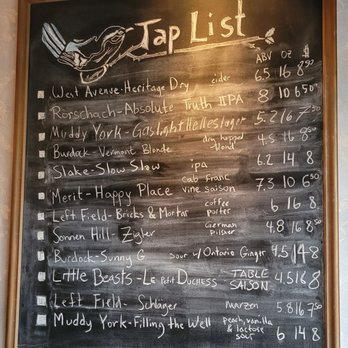 Tap List
ABV OZ $
West Avenue-Heritage Dry cider 6.5 16 8
Rorschach-Absolute Truth IIPA 8 10 6.50
Muddy York-Gaslight Helleslager 5.2 16 7.50
Burdock-Vermont Blonde dry hopped blond 4.5 16 8.50
Slake-Slow Slow ipa 6.2 14 8
Merit-Happy Place cab franc vine saison 7.3 10 6.50
Left Field-Bricks & Mortar coffee porter 6 16 8
Sonnen Hill-Zyler German Pilsner 4.8 16 8.50
Burdock-Sunny G sour w/Ontario Ginger 4.5 14 8
Little Beasts-Le Petit Duchess TABLE SAISON 4.5 16 8
Left Field-Schlänger marzen 5.8 16 7.50
Muddy York-Filling the Well peach, vanilla & lactose sour 6 14 8